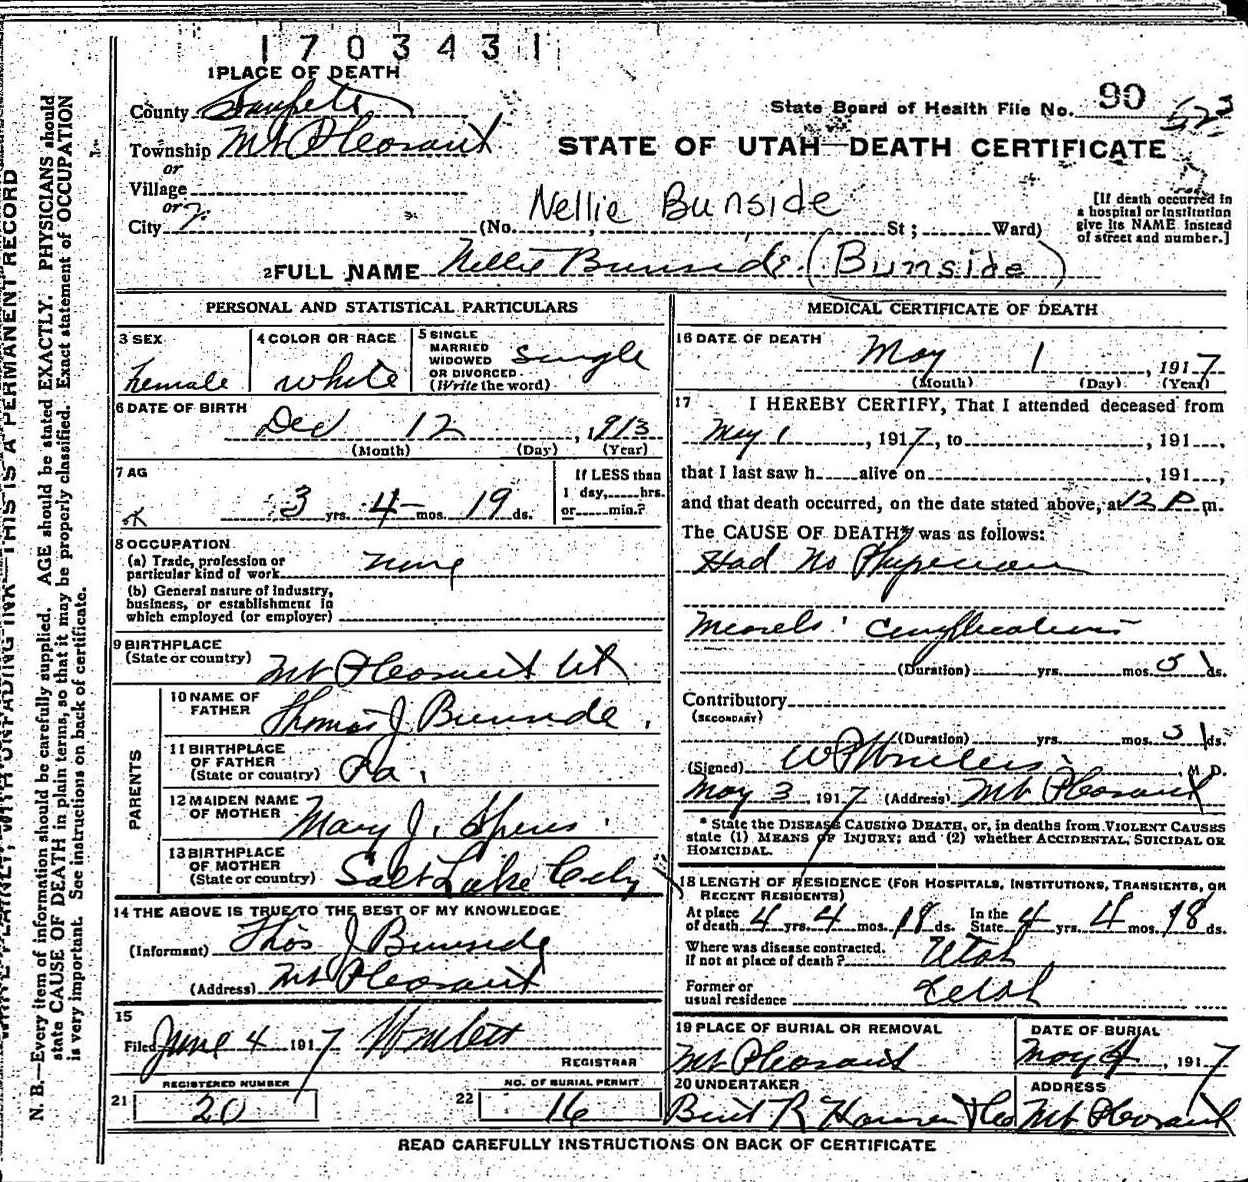 1703431
1 PLACE OF DEATH
County Sanpete
State Board of Health File No. 90
Township Mt Pleasant
STATE OF UTAH—DEATH CERTIFICATE
or
Village
or
City
(No. St; Ward)
Nellie Bunside
[If death occurred in
a hospital or institution
give its NAME instead
of street and number.]
2 FULL NAME Nellie Burnside (Bunside)
PERSONAL AND STATISTICAL PARTICULARS
3 SEX
female
4 COLOR OR RACE
white
5 SINGLE
MARRIED
WIDOWED
OR DIVORCED
(Write the word)
single
6 DATE OF BIRTH
Dec 12, 1913
(Month) (Day) (Year)
7 AG
3 yrs. 4 mos. 19 ds.
If LESS than
1 day, hrs.
or min.?
8 OCCUPATION
(a) Trade, profession or
particular kind of work none
(b) General nature of industry,
business, or establishment in
which employed (or employer)
9 BIRTHPLACE
(State or country) Mt Pleasant Ut
PARENTS
10 NAME OF
FATHER Thomas J Burnside.
11 BIRTHPLACE
OF FATHER
(State or country) Pa.
12 MAIDEN NAME
OF MOTHER Mary J.
13 BIRTHPLACE
OF MOTHER
(State or country) Salt Lake City
14 THE ABOVE IS TRUE TO THE BEST OF MY KNOWLEDGE
(Informant) Thos J Burnside
(Address) Mt Pleasant
15
Filed June 4 1917
REGISTRAR
REGISTERED NUMBER
21 20
NO. OF BURIAL PERMIT
22 16
MEDICAL CERTIFICATE OF DEATH
16 DATE OF DEATH
May 1, 1917
(Month) (Day) (Year)
17 I HEREBY CERTIFY, That I attended deceased from
May 1, 1917, to , 191 ,
that I last saw h alive on , 191 ,
and that death occurred, on the date stated above, at 12 P m.
The CAUSE OF DEATH* was as follows:
Had No Physician
Measels' Complications
(Duration) yrs. mos. ds.
Contributory
(SECONDARY)
(Duration) yrs. mos. ds.
(Signed) M. D.
May 3, 1917 (Address) Mt Pleasant
* State the DISEASE CAUSING DEATH, or, in deaths from VIOLENT CAUSES
state (1) MEANS OF INJURY; and (2) whether ACCIDENTAL, SUICIDAL OR
HOMICIDAL.
18 LENGTH OF RESIDENCE (FOR HOSPITALS, INSTITUTIONS, TRANSIENTS, OR
RECENT RESIDENTS)
At place
of death 4 yrs. 4 mos. 18 ds.
In the
State 4 yrs. 4 mos. 18 ds.
Where was disease contracted,
if not at place of death? Utah
Former or
usual residence Utah
19 PLACE OF BURIAL OR REMOVAL
Mt Pleasant
DATE OF BURIAL
May 4, 1917
20 UNDERTAKER
ADDRESS
Mt Pleasant
READ CAREFULLY INSTRUCTIONS ON BACK OF CERTIFICATE
THIS IS A PERMANENT RECORD
N. B.—Every item of information should be carefully supplied. AGE should be stated EXACTLY. PHYSICIANS should
state CAUSE OF DEATH in plain terms, so that it may be properly classified. Exact statement of OCCUPATION
is very important. See instructions on back of certificate.